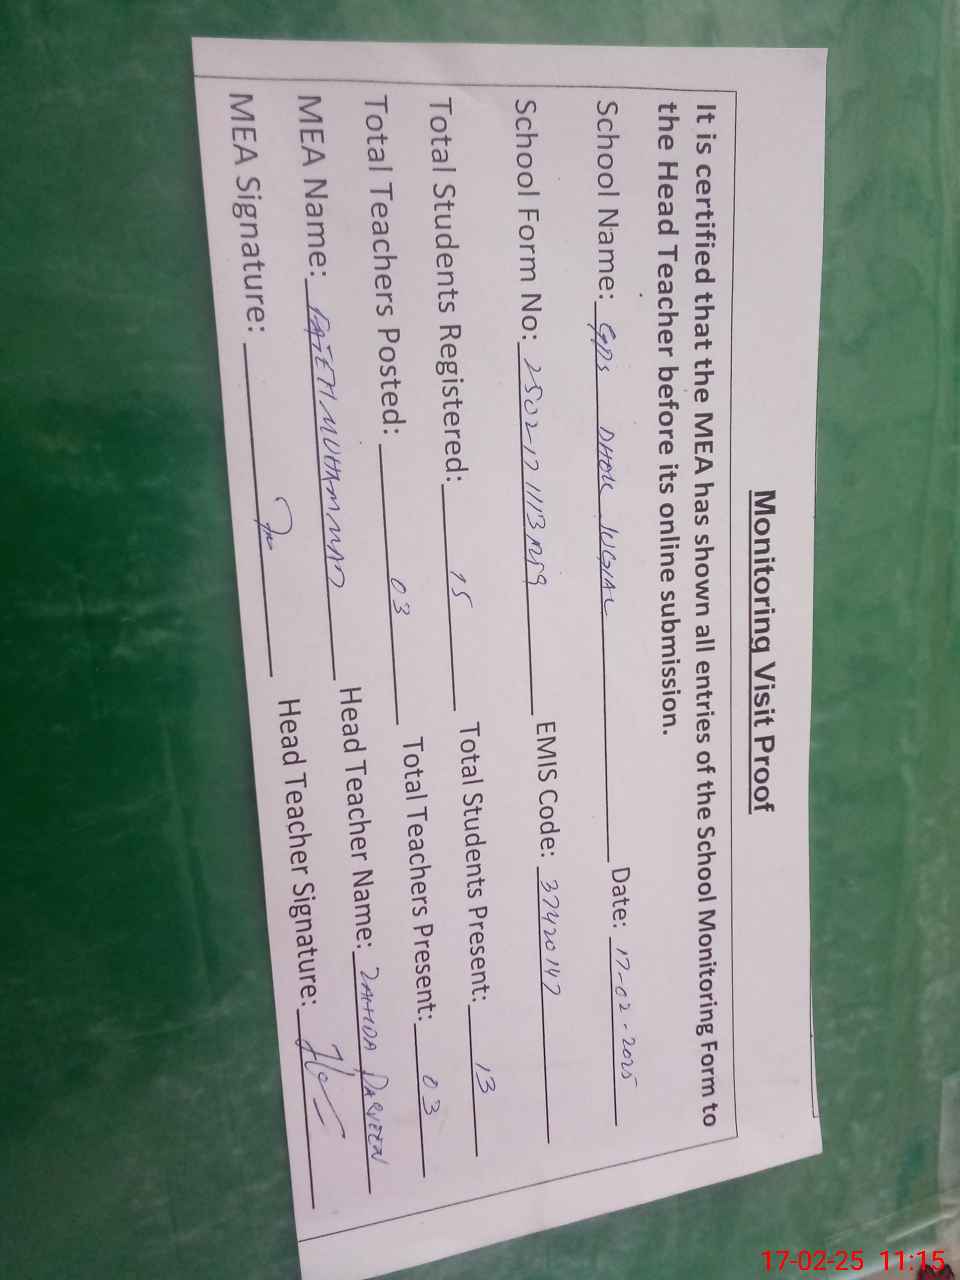 Monitoring Visit Proof
It is certified that the MEA has shown all entries of the School Monitoring Form to
the Head Teacher before its online submission.
School Name: GPS DHOK JUGIAL Date: 17-02-2025
School Form No: EMIS Code: 37420147
Total Students Registered: 15 Total Students Present: 13
Total Teachers Posted: 03 Total Teachers Present: 03
MEA Name: FATEH MUHAMMAD Head Teacher Name: ZAHIDA PARVEEN
MEA Signature: Head Teacher Signature:
17-02-25 11:15